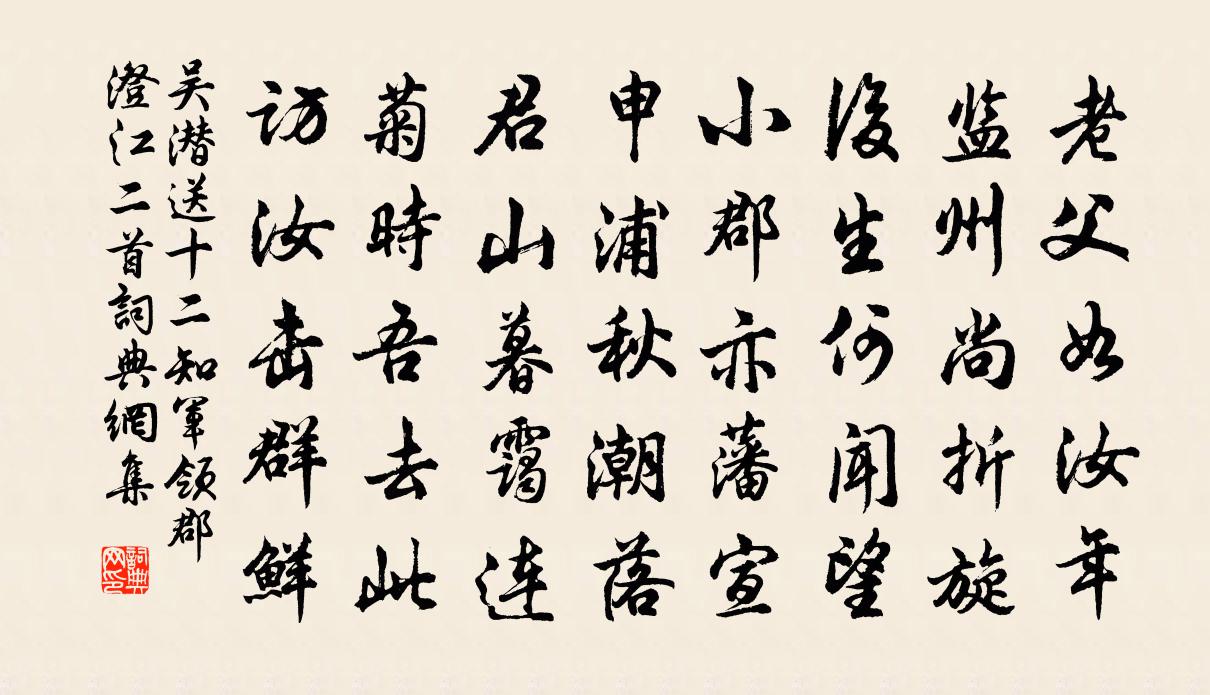 老父如汝年
监州尚折旋
後生何闻望
小郡亦藩宣
申浦秋潮落
君山暮霭连
菊時吾去此
访汝击群鲜
吴潜送十二知军领郡
澄江二首詞典網集
詞典网印